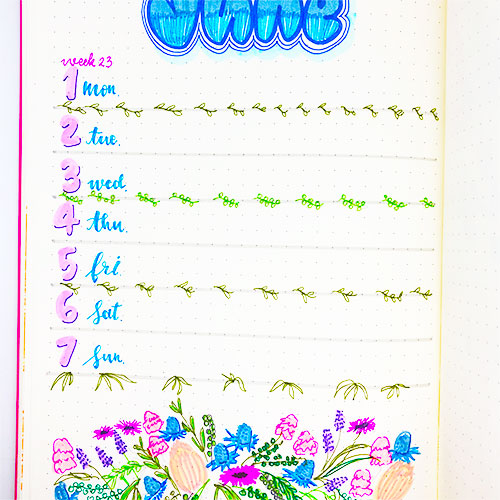 June
week 23
1 mon.
2 tue.
3 wed.
4 thu.
5 fri.
6 Sat.
7 Sun.